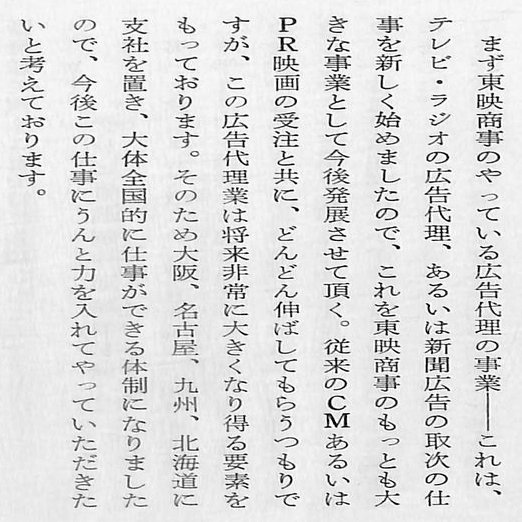 まず東映商事のやっている広告代理の事業――これは、
テレビ・ラジオの広告代理、あるいは新聞広告の取次の仕
事を新しく始めましたので、これを東映商事のもっとも大
きな事業として今後発展させて頂く。従来のCMあるいは
PR映画の受注と共に、どんどん伸ばしてもらうつもりで
すが、この広告代理業は将来非常に大きくなり得る要素を
もっております。そのため大阪、名古屋、九州、北海道に
支社を置き、大体全国的に仕事ができる体制になりました
ので、今後この仕事にうんと力を入れてやっていただきた
いと考えております。